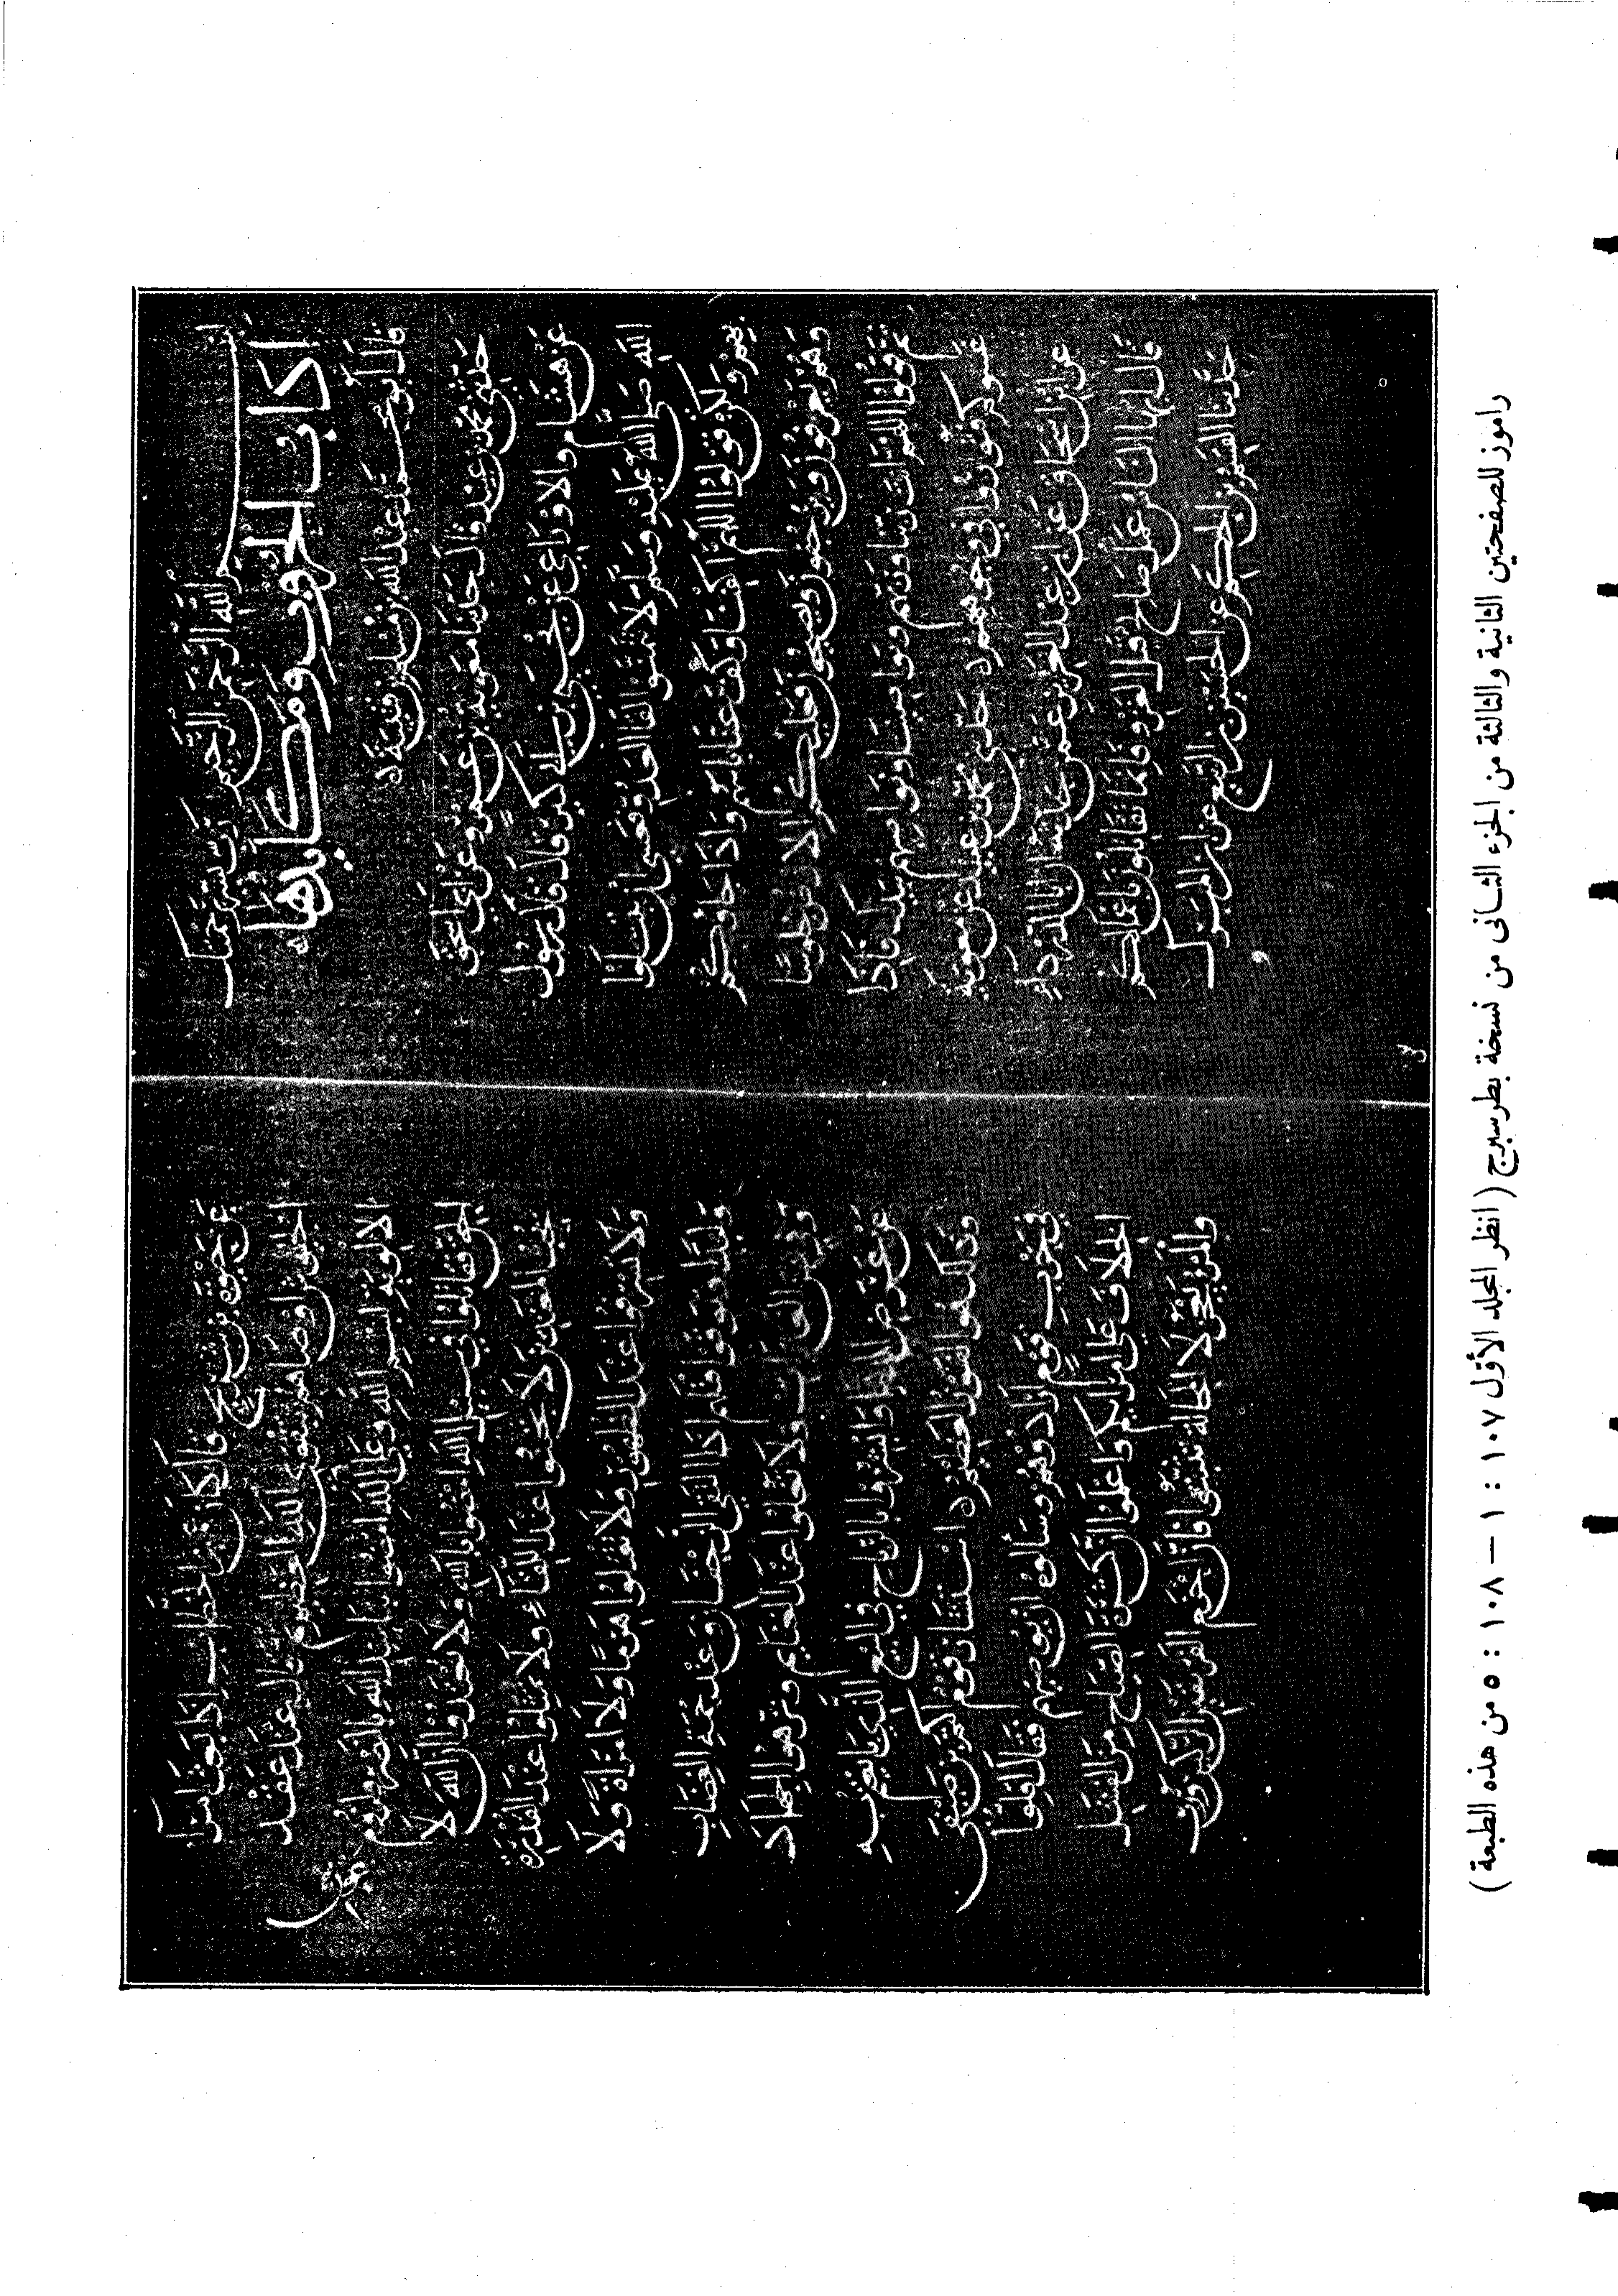 بسم الله الرحمن الرحيم رب يسر برحمتك
آداب الحروب ومكايدها
قال أبو محمد عبد الله بن مسلم بن قتيبة
حدثني محمد بن عبيد قال حدثنا معوية بن عمرو عن أبي إسحق
عن هشام والأوزاعي عن يحيى بن أبي كثير قال قال رسول
الله صلى الله عليه وسلم لا تتمنوا لقاء العدو فعسى أن تبتلوا
بهم ولكن قولوا اللهم اكفنا وكف عنا بأسهم وإذا جاءوكم
وهم يعزفون ويزحفون ويصيحون فعليكم الأرض جلوسا
ثم قولوا اللهم أنت ربنا وربهم ونواصينا ونواصيهم بيدك فإذا
غشوكم فثوروا في وجوههم حدثني محمد بن عبيد عن معوية
عن أبي إسحاق عن سعيد بن عبد العزيز عمن حدثه أن أبا الدرداء
قال أيها الناس عمل صالح قبل الغزو فإنما تقاتلون بأعمالكم
حدثنا القاسم بن الحسن عن الحسن بن الربيع عن ابن المبارك
عن حيوة بن شريح قال كان عمر بن الخطاب إذا بعث أمراء
الجيوش أوصاهم بتقوى الله العظيم ثم قال عند عقد
الألوية بسم الله وعلى عون الله امضوا بتأييد الله بالنصر ولزوم
الحق فقاتلوا في سبيل الله من كفر بالله ولا تعتدوا إن الله لا
يحب المعتدين لا تجبنوا عند اللقاء ولا تمثلوا عند القدرة
ولا تسرفوا عند الظهور ولا تقتلوا هرما ولا امرأة ولا
وليدا وتوقوا قتلهم إذا التقى الزحفان وعند حمة النهضات
وفي شن الغارات ولا تغلوا عند الغنائم ونزهوا الجهاد
عن عرض الدنيا وأبشروا بالرباح في البيع الذي بايعتم به
وذلك هو الفوز العظيم استشار قوم أكثم بن صيفي
في حرب قوم أرادوهم وسألوه أن يوصيهم فقال أقلوا
الخلاف على أمرائكم واعلموا أن كثرة الصياح من الفشل
والمرء يعجز لا المحالة تثبتوا فإن أحزم الفريقين الركين
راموز للصفحتين الثانية والثالثة من الجزء الثاني من نسخة بطرسبرج (انظر المجلد الأوّل ١٠٧ : ١ — ١٠٨ : ٥ من هذه الطبعة)